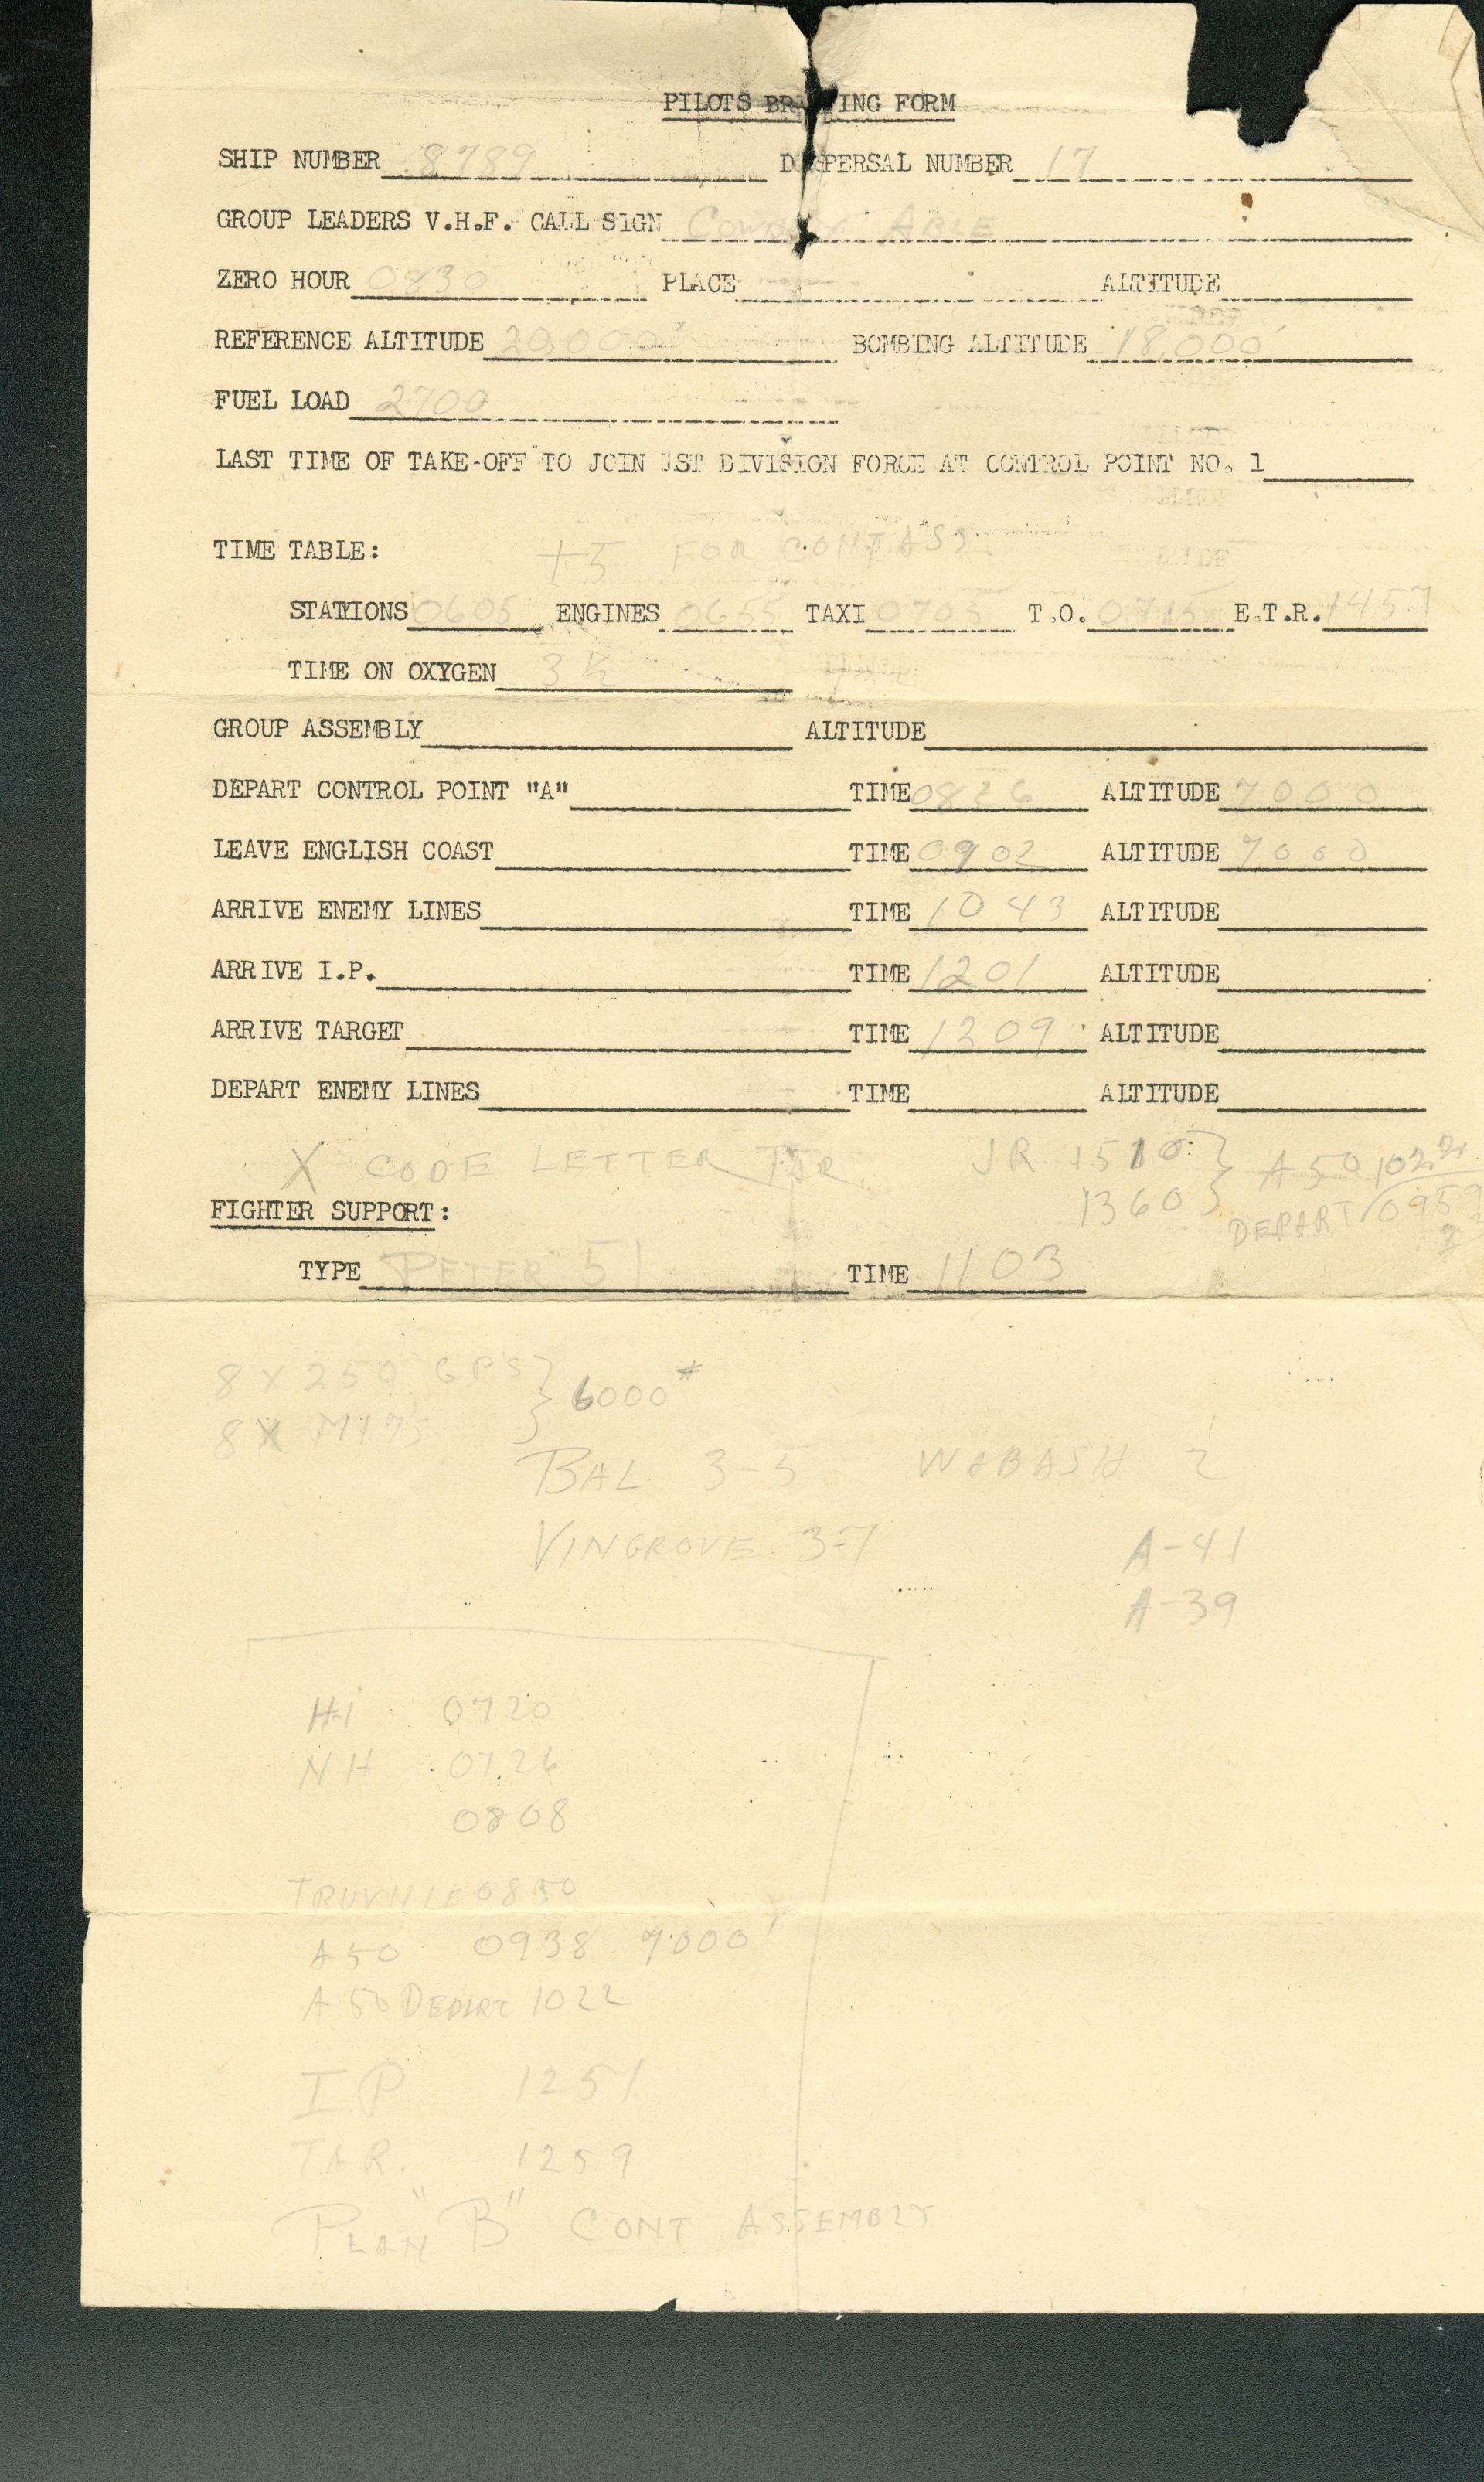 PILOTS BR ING FORM
SHIP NUMBER 8789 DISPERSAL NUMBER 17
GROUP LEADERS V.H.F. CALL SIGN COWBOY ABLE
ZERO HOUR 0830 PLACE ALTITUDE
REFERENCE ALTITUDE 20,000' BOMBING ALTITUDE 18,000'
FUEL LOAD 2700
LAST TIME OF TAKE-OFF TO JOIN 1ST DIVISION FORCE AT CONTROL POINT NO. 1
TIME TABLE: +5 FOR CONT ASS.
STATIONS 0605 ENGINES 0655 TAXI 0705 T.O. 0715 E.T.R. 1457
TIME ON OXYGEN 3 ½
GROUP ASSEMBLY ALTITUDE
DEPART CONTROL POINT "A" TIME 0826 ALTITUDE 7000
LEAVE ENGLISH COAST TIME 0902 ALTITUDE 7000
ARRIVE ENEMY LINES TIME 1043 ALTITUDE
ARRIVE I.P. TIME 1201 ALTITUDE
ARRIVE TARGET TIME 1209 ALTITUDE
DEPART ENEMY LINES TIME ALTITUDE
X CODE LETTER TAR. JR 1510 } A 50 1022
1360 } DEPART 0959
FIGHTER SUPPORT:
TYPE PETER 51 TIME 1103
8 X 250 GPS } 6000#
8 X M17S }
BAL 3-5 WABASH 2
VINGROVE 3-7 A-41
A-39
HI 0720
NH 0726
0808
TRUVILLE 0850
A 50 0938 7000'
A 50 DEPART 1022
IP 1251
TAR. 1259
PLAN "B" CONT ASSEMBLY